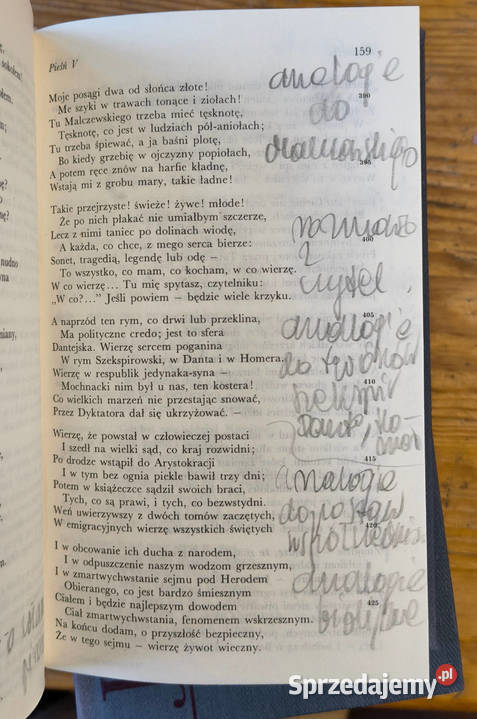 Pieśń V
159
Moje posągi dwa od słońca złote!
Me szyki w trawach tonące i ziołach!
390
Tu Malczewskiego trzeba mieć tęsknotę,
Tęsknotę, co jest w ludziach pół-aniołach;
Tu trzeba śpiewać, a ja baśni plotę,
Bo kiedy grzebię w ojczyzny popiołach,
395
A potem ręce znów na harfie kładnę,
Wstają mi z grobu mary, takie ładne!
Takie przejrzyste! świeże! żywe! młode!
Że po nich płakać nie umiałbym szczerze,
Lecz z nimi taniec po dolinach wiodę,
400
A każda, co chce, z mego serca bierze:
Sonet, tragedią, legendę lub odę –
To wszystko, co mam, co kocham, w co wierzę.
W co wierzę... Tu mię spytasz, czytelniku:
„W co?..." Jeśli powiem – będzie wiele krzyku.
405
A naprzód ten rym, co drwi lub przeklina,
Ma polityczne credo; jest to sfera
Dantejska. Wierzę sercem poganina
W rym Szekspirowski, w Danta i w Homera,
Wierzę w respublik jedynaka-syna –
410
Mochnacki nim był u nas, ten kostera!
Co wielkich marzeń nie przestając snować,
Przez Dyktatora dał się ukrzyżować. –
Wierzę, że powstał w człowieczej postaci
I szedł na wielki sąd, co kraj rozwidni;
415
Po drodze wstąpił do Arystokracji
I w tym bez ognia piekle bawił trzy dni;
Potem w książeczce sądził swoich braci,
Tych, co są prawi, i tych, co bezwstydni.
Weń uwierzywszy z dwóch tomów zaczętych,
420
W emigracyjnych wierzę wszystkich świętych
I w obcowanie ich ducha z narodem,
I w odpuszczenie naszym wodzom grzesznym,
I w zmartwychwstanie sejmu pod Herodem
Obieranego, co jest bardzo śmiesznym
425
Ciałem i będzie najlepszym dowodem
Ciał zmartwychwstania, fenomenem wskrzesznym.
Na końcu dodam, o przyszłość bezpieczny,
Że w tego sejmu – wierzę żywot wieczny.
analogie
do
rozmowa
z
czytel.
analogie
do twórców
Dante, Ho-
mer
analogie
do postaw
analogie
biblijne
Sprzedajemy.pl